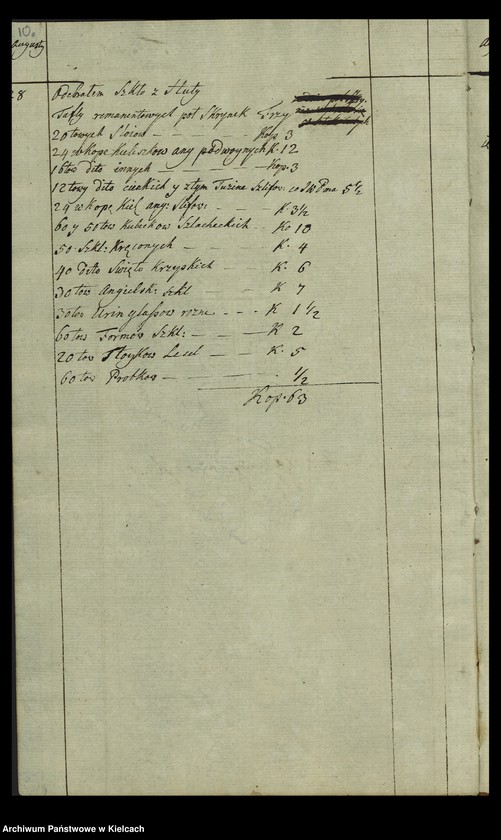 10.
Augusty
28 Odebrałem Szkło z Huty
Tafly remanentowych puł Skrzynek Trzy
20towych Słoiow — — — Kop 3
24 w Kope Kieliszkow ang podwoynych K. 12
18tow dito innych — — — Kop. 3
12towy dito cienkich y z tym Tuzine Szlifow: co JMPana 5 1/2
24 w Kopę Kiel ang: Szlifow: K 3 1/2
60 y 50tow Kubeckow Szlacheckich — Ko 10
50. Szkl: Kręconych — K. 4
40 dito Święto Krzyskich — K. 6
30tow Angielsk: Szkl K 7
30tow Uringlassow rozne — K 1 1/2
60tow Formow Szkl: — — K 2
20tow Stoykow — — K. 5
60tow Probkow — — . 1/2
Kop. 63
Archiwum Państwowe w Kielcach